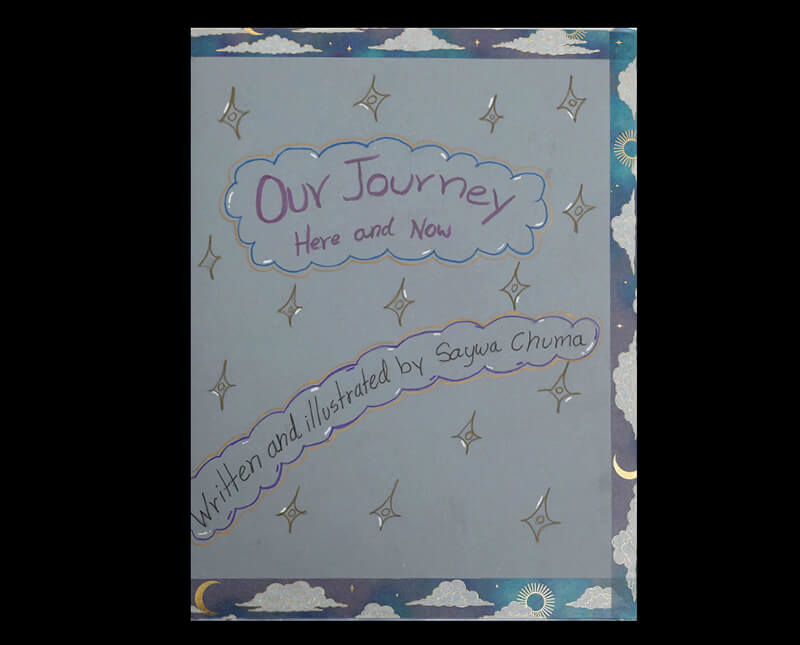 Our Journey
Here and Now
Written and illustrated by Saywa Chuma